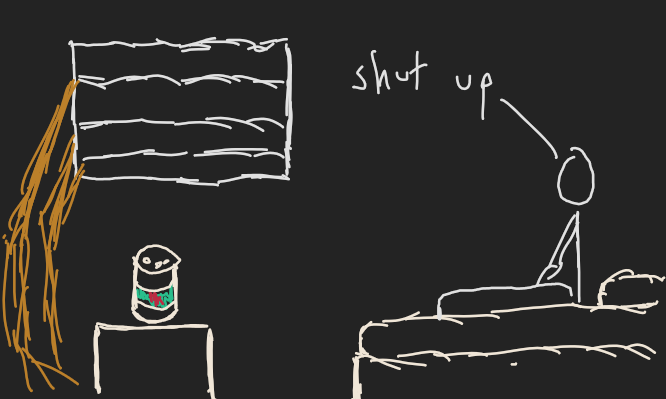 shut up